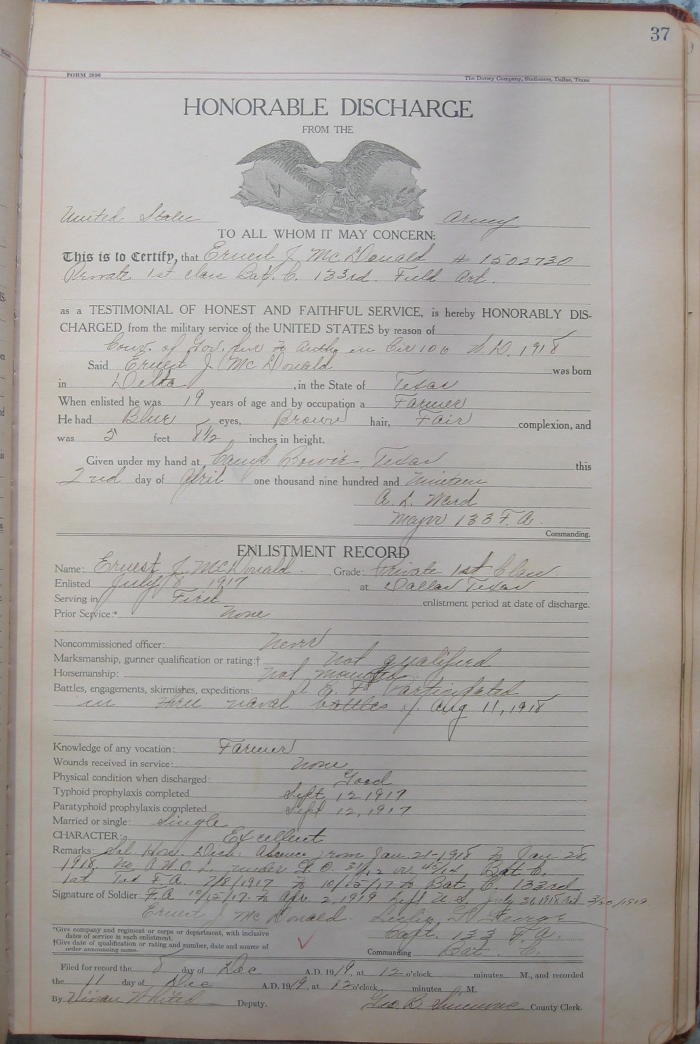 37
FORM 2090
The Dorsey Company, Stationers, Dallas, Texas
HONORABLE DISCHARGE
FROM THE
United States Army
TO ALL WHOM IT MAY CONCERN:
This is to Certify, that Ernest J. McDonald # 1502730
Private 1st class Bat. C. 133rd. Field Art.
as a TESTIMONIAL OF HONEST AND FAITHFUL SERVICE, is hereby HONORABLY DIS-
CHARGED from the military service of the UNITED STATES by reason of
Conv. of Gov. in Cir 106 W.D. 1918
Said Ernest J. McDonald was born
in Delta, in the State of Texas
When enlisted he was 19 years of age and by occupation a Farmer
He had Blue eyes, Brown hair, Fair complexion, and
was 5 feet 8½ inches in height.
Given under my hand at Camp Bowie Texas this
2nd day of April one thousand nine hundred and Nineteen
A. L. Ward
Major 133 F.A.
Commanding.
ENLISTMENT RECORD
Name: Ernest J. McDonald Grade: Private 1st Class
Enlisted July 8 1917 at Dallas Texas
Serving in First enlistment period at date of discharge.
Prior Service:* None
Noncommissioned officer: Never
Marksmanship, gunner qualification or rating:† Not qualified
Horsemanship: Not mounted
Battles, engagements, skirmishes, expeditions: Participated
in three naval battles of Aug 11, 1918
Knowledge of any vocation: Farmer
Wounds received in service: None
Physical condition when discharged: Good
Typhoid prophylaxis completed Sept 12, 1917
Paratyphoid prophylaxis completed Sept 12, 1917
Married or single: Single
CHARACTER: Excellent
Remarks: Absence from Jan 21-1918 to Jan 28,
1918. No A.W.O.L. under G.O. 31/12 or 45/14, Bat C.
1st Tex F.A. 7/8/1917 to 10/15/17 to Bat. C. 133rd
Signature of Soldier: F.A. 10/15/17 to Apr. 2, 1919 Left U.S. July 31 1918 3/20/1919
Ernest J McDonald
Capt. 133 F.A.
*Give company and regiment or corps or department, with inclusive
dates of service in each enlistment.
†Give date of qualification or rating and number, date and source of
order announcing same.
Commanding Bat. C.
Filed for record the 8 day of Dec A.D. 1919, at 12 o'clock minutes M., and recorded
the 11 day of Dec A.D. 1919, at 12 o'clock, minutes M.
By Vivian Whited Deputy. Geo. B. County Clerk.